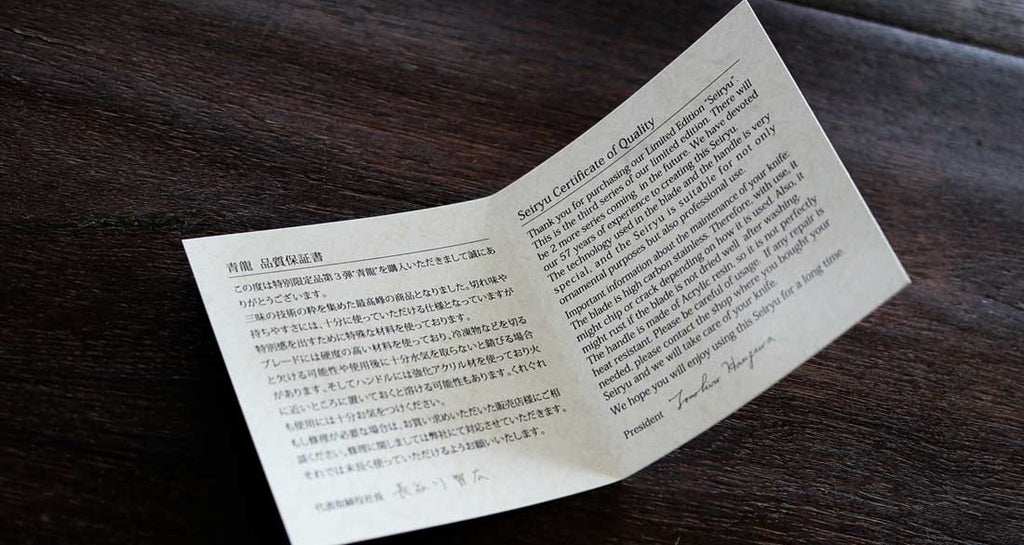 青龍 品質保証書
この度は特別限定品第3弾“青龍”を購入いただきまして誠にあ
りがとうございます。
三昧の技術の粋を集めた最高峰の商品となりました。切れ味や
持ちやすさには、十分に使っていただける仕様となっていますが
特別感を出すために特殊な材料を使っております。
ブレードには硬度の高い材料を使っており、冷凍物などを切る
と欠ける可能性や使用後に十分水気を取らないと錆びる場合
があります。そしてハンドルには強化アクリル材を使っており火
に近いところに置いておくと溶ける可能性もあります。くれぐれ
も使用には十分お気をつけください。
もし修理が必要な場合は、お買い求めいただいた販売店様にご相
談ください。修理に関しましては弊社にて対応させていただきます。
それでは末長く使っていただけるようお願いいたします。
代表取締役社長 長谷川
Seiryu Certificate of Quality
Thank you for purchasing our Limited Edition "Seiryu".
This is the third series of our limited edition. There will
be 2 more series coming, in the future. We have devoted
our 57 years of experience to creating this Seiryu.
The technology used in the blade and the handle is very
special, and the Seiryu is suitable for not only
ornamental purposes but also professional use.
Important information about the maintenance of your knife:
The blade is high carbon stainless. Therefore, with use, it
might chip or crack depending on how it is used. Also, it
might rust if the blade is not dried well after washing.
The handle is made of Acrylic resin, so it is not perfectly
heat resistant. Please be careful of usage. If any repair is
needed, please contact the shop where you bought your
Seiryu and we will take care of your knife.
We hope you will enjoy using this Seiryu for a long time.
President